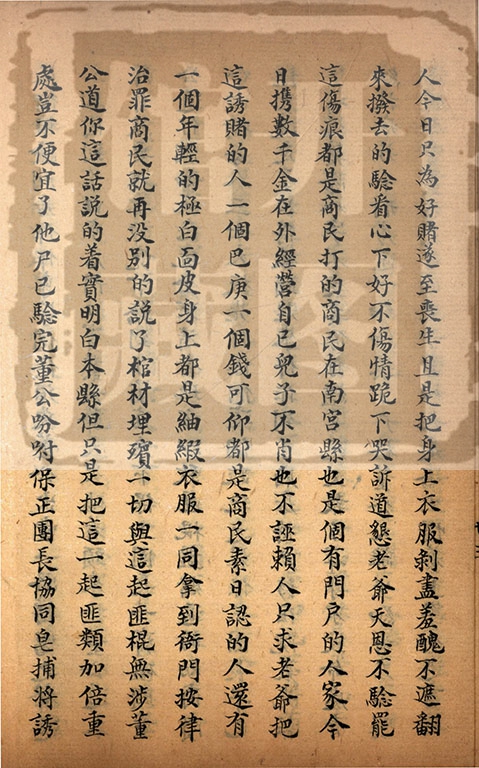 人今日只為好賭遂至喪生且是把身上衣服剥盡羞醜不遮翻
來撥去的驗看心下好不傷情跪下哭訴道懇老爺天恩不驗罷
這傷痕都是商民打的商民在南宮縣也是個有門户的人家今
日携數千金在外經營自己兒子不肖也不誣賴人只求老爺把
這誘賭的人一個巴庚一個錢可仰都是商民素日認的人還有
一個年輕的極白面皮身上都是紬緞衣服一同拿到衙門按律
治罪商民就再没別的說了棺材埋殯一切與這起匪棍無涉董
公道你這話說的着實明白本縣但只是把這一起匪類加倍重
處豈不便宜了他尸已驗完董公吩咐保正團長協同皂捕將誘